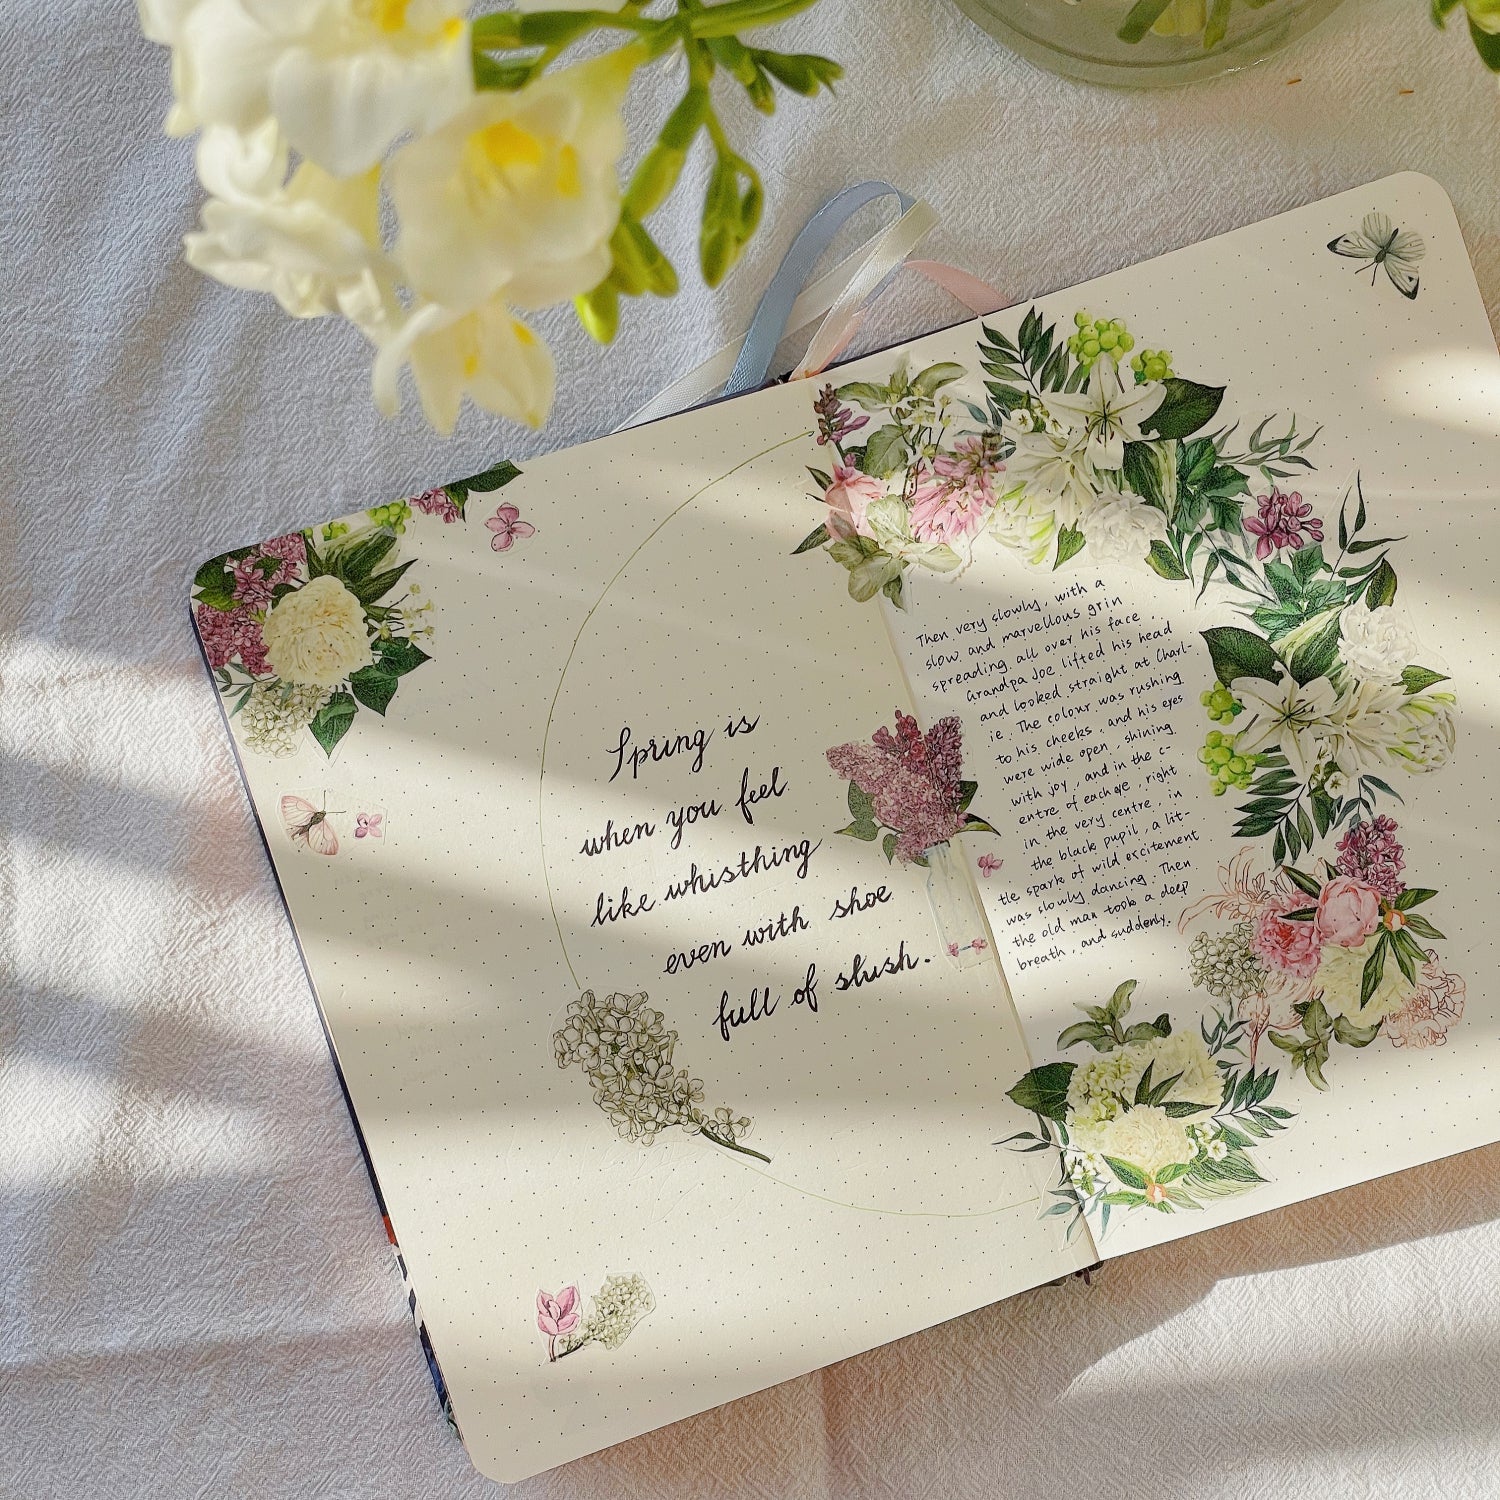 Spring is
when you feel
like whisthing
even with shoe
full of slush.
Then very slowly, with a
slow and marvellous grin
spreading all over his face,
Grandpa Joe lifted his head
and looked straight at Charl-
ie. The colour was rushing
to his cheeks, and his eyes
were wide open, shining
with joy, and in the c-
entre of each eye, right
in the very centre, in
the black pupil, a lit-
tle spark of wild excitement
was slowly dancing. Then
the old man took a deep
breath, and suddenly,